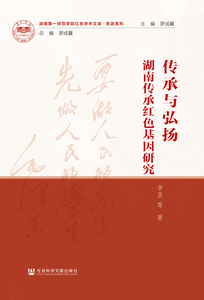 湖南第一师范学院红色学术文库·思政系列
主 编 罗成翼
总 编 罗成翼
传承与弘扬
湖南传承红色基因研究
要做人民的先生
先做人民的学生
毛泽东
等 著
社会科学文献出版社